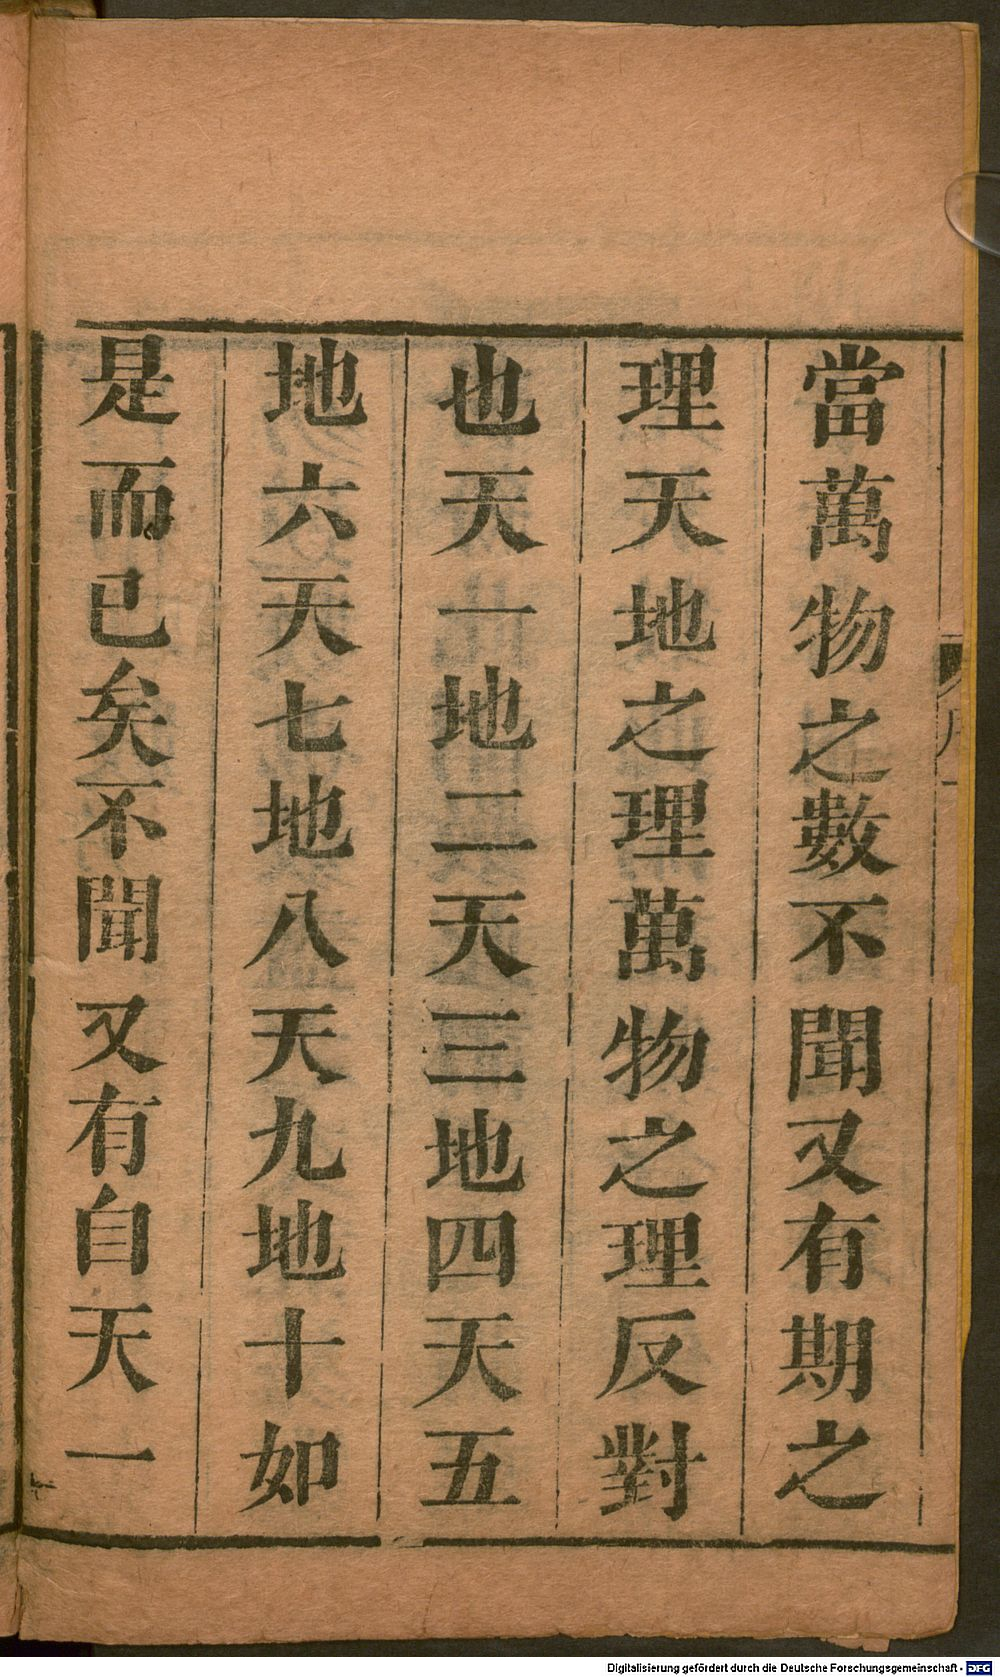 當萬物之數不聞又有期之
理天地之理萬物之理反對
也天一地二天三地四天五
地六天七地八天九地十如
是而已矣不聞又有自天一
Digitalisierung gefördert durch die Deutsche Forschungsgemeinschaft - DFG